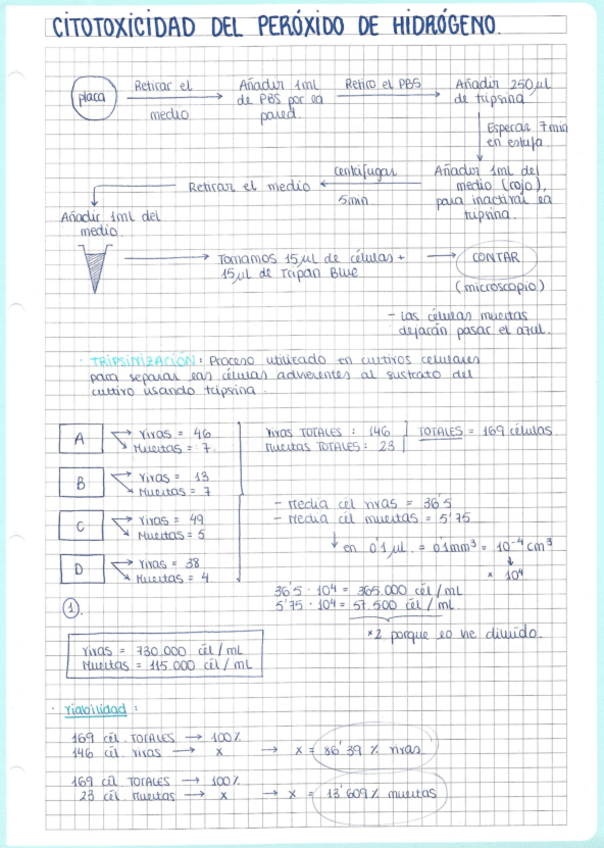 CITOTOXICIDAD DEL PERÓXIDO DE HIDRÓGENO.
placa
Retirar el
medio
Añadir 1ml
de PBS por la
pared.
Retiro el PBS
Añadir 250µl
de tripsina
Esperar 7min
en estufa.
Añadir 1ml del
medio (rojo),
para inactivar la
tripsina.
Centrifugar
5min
Retirar el medio
Añadir 1ml del
medio.
Tomamos 15µl de células +
15µl de Tripan Blue
CONTAR
(microscopio)
- Las células muertas
dejarán pasar el azul.
· TRIPSINIZACIÓN: Proceso utilizado en cultivos celulares
para separar las células adherentes al sustrato del
cultivo usando tripsina.
A
Vivas = 46
Muertas = 7
B
Vivas = 13
Muertas = 7
C
Vivas = 49
Muertas = 5
D
Vivas = 38
Muertas = 4
Vivas TOTALES: 146
Muertas TOTALES: 23
TOTALES = 169 células
- Media cél vivas = 36'5
- Media cél muertas = 5'75
↓ en 0'1 µl = 0'1mm³ = 10⁻⁴ cm³
↓
× 10⁴
36'5 · 10⁴ = 365.000 cél/mL
5'75 · 10⁴ = 57.500 cél/mL.
*2 porque lo he diluido.
①.
Vivas = 730.000 cél/mL
Muertas = 115.000 cél/mL
· Viabilidad:
169 cél. TOTALES → 100%
146 cél. vivas → x → x = 86'39 % vivas
169 cél TOTALES → 100%
23 cél Muertas → x → x = 13'609% muertas